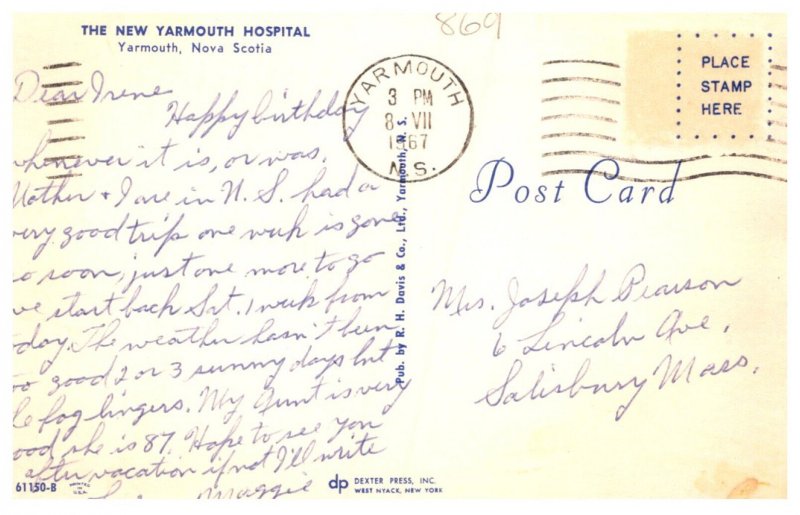 869
THE NEW YARMOUTH HOSPITAL
Yarmouth, Nova Scotia
PLACE
STAMP
HERE
YARMOUTH
3 PM
8 VII
1967
N.S.
Post Card
Dear Irene
Happy birthday
whenever it is, or was.
Mother + I are in N.S. had a
very good trip one week is gone
so soon, just one more to go
we start back Sat, 1 week from
today. The weather hasn't been
too good 2 or 3 sunny days but
fog lingers. My Aunt is very
good she is 87. Hope to see you
after vacation if not I'll write
Maggie
Mrs. Joseph Pearson
6 Lincoln Ave,
Salisbury Mass.
Pub. by R. H. Davis & Co., Ltd., Yarmouth, N. S.
61150-B
PRINTED
IN
U.S.A.
dp DEXTER PRESS, INC.
WEST NYACK, NEW YORK